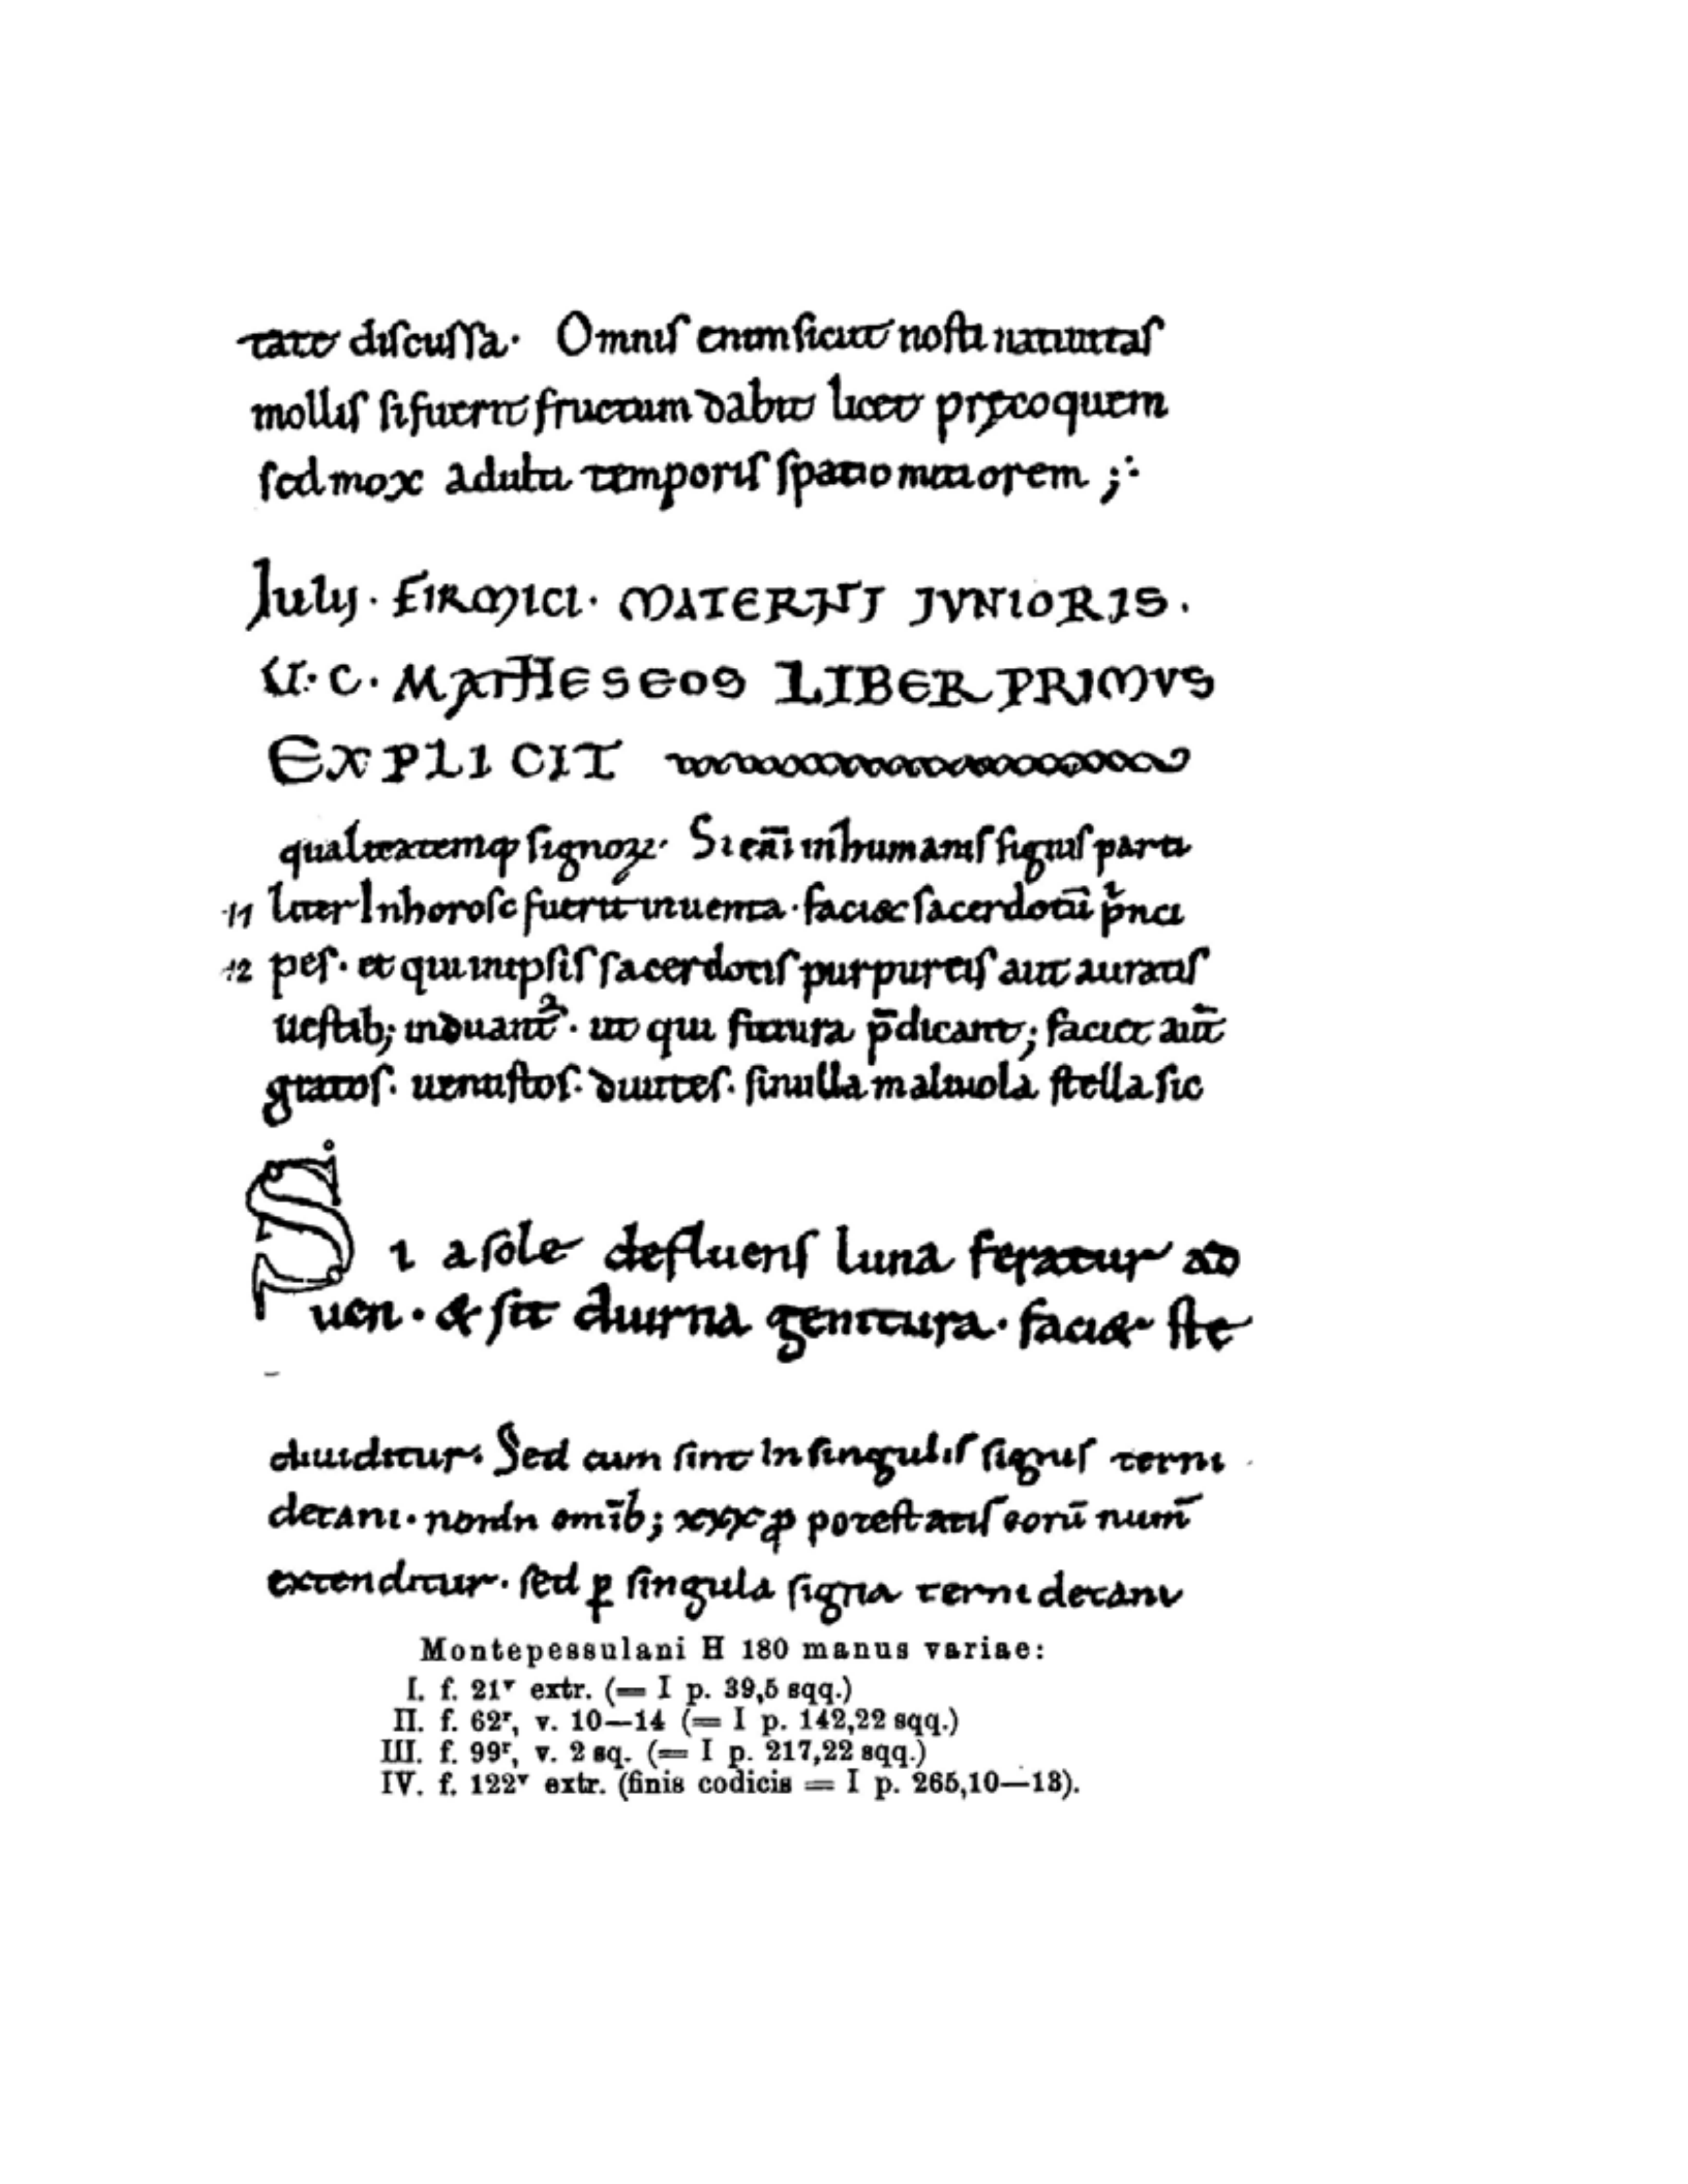 tate discussa· Omnis enim sicut nosti natiuitas
mollis si fuerit fructum dabit licet pręcoquem
sed mox adulti temporis spatio maiorem ;·
Iulij· FIRMICI· MATERNI IVNIORIS·
U·C· MATHESEOS LIBER PRIMVS
EXPLICIT
qualitatemq; signoꝝ· Si eni in humanis signis parti
11 liter In horosc fuerit inuenta· faciet sacerdotū p̍nci
12 pes· et qui in ipsis sacerdotiis purpureis aut auratis
uestib; induant᷒· ut qui futura p̄dicant; faciet aut̄
gratos· uenustos· diuites· si nulla maliuola stella sic
Si a sole defluens luna feratur ad
uen· & sit diurna genitura· faci& ste
diuiditur· Sed cum sint In singulis signis terni
decani· non In omib; xxx ꝑ potestatis eorū num̄
extenditur· sed ꝑ singula signa terni decani
Montepessulani H 180 manus variae:
I. f. 21ᵛ extr. (= I p. 39,5 sqq.)
II. f. 62ʳ, v. 10—14 (= I p. 142,22 sqq.)
III. f. 99ʳ, v. 2 sq. (= I p. 217,22 sqq.)
IV. f. 122ᵛ extr. (finis codicis = I p. 265,10—13).